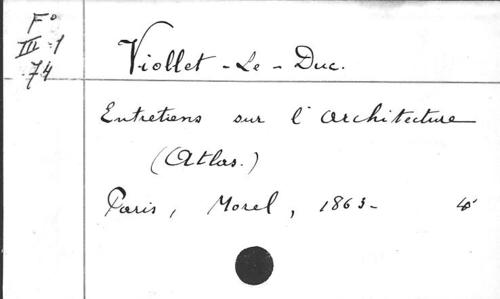 F°
III 1
74
Viollet-Le-Duc.
Entretiens sur l'architecture
(Atlas.)
Paris, Morel, 1863-